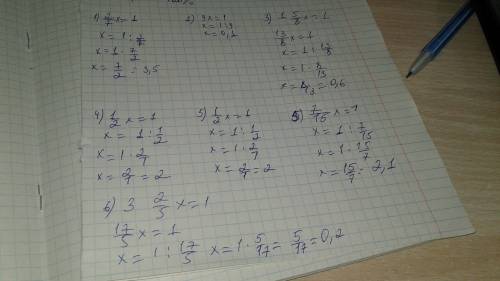 1) 2/7 x = 1
x = 1 : 2/7
x = 1 · 7/2
x = 7/2 = 3,5
2) 9x = 1
x = 1 : 9
x = 0,1
3) 1 5/8 x = 1
13/8 x = 1
x = 1 : 13/8
x = 1 · 8/13
x = 8/13 = 0,6
4) 1/2 x = 1
x = 1 : 1/2
x = 1 · 2/1
x = 2/1 = 2
5) 1/2 x = 1
x = 1 : 1/2
x = 1 · 2/1
x = 2/1 = 2
7/15 x = 1
x = 1 : 7/15
x = 1 · 15/7
x = 15/7 = 2,1
6) 3 2/5 x = 1
17/5 x = 1
x = 1 : 17/5 x = 1 · 5/17 = 5/17 = 0,2